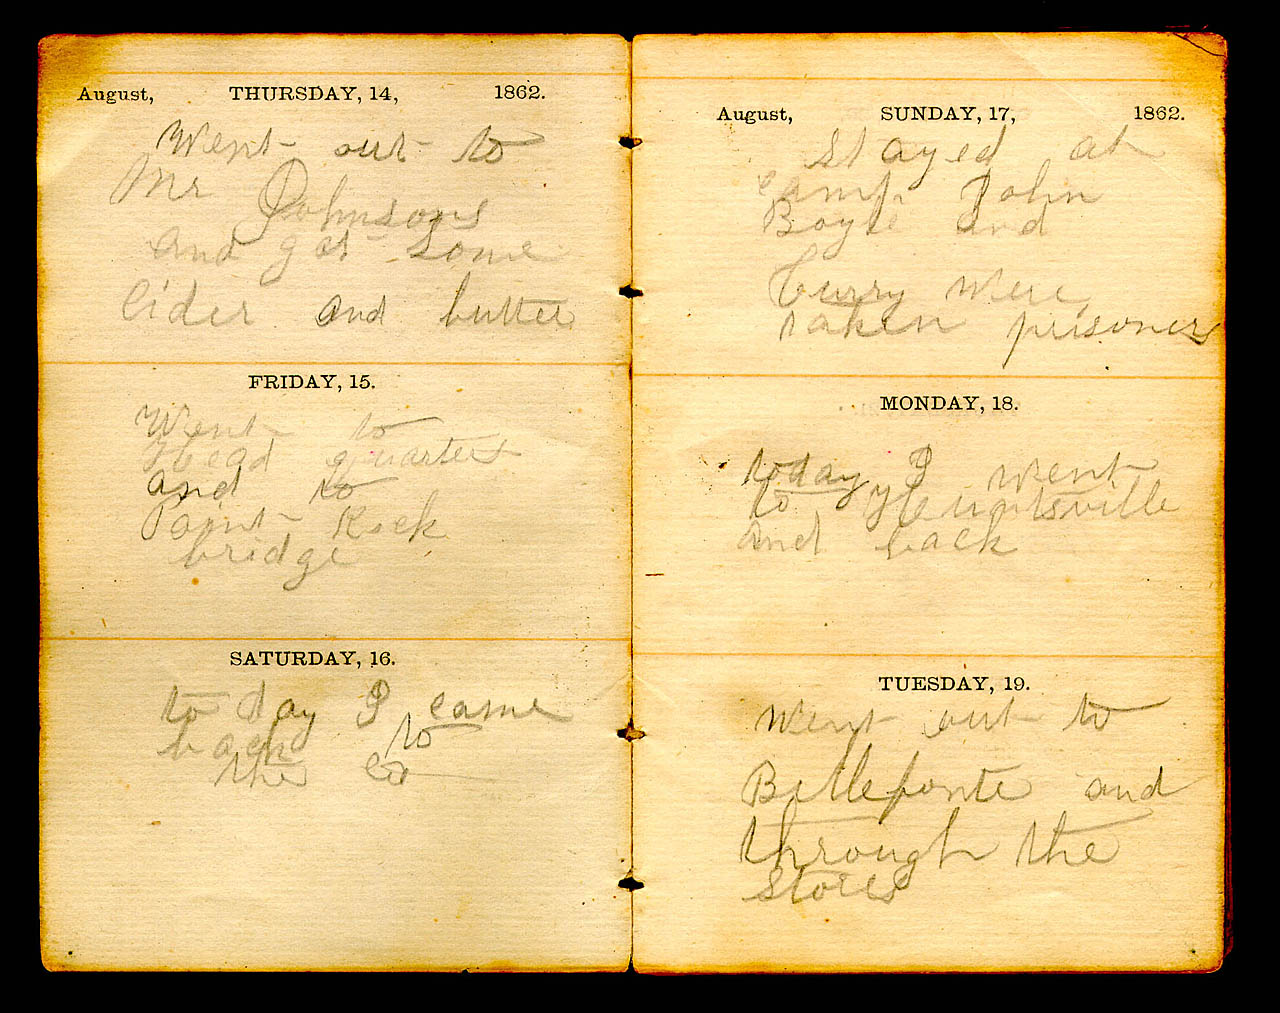 August, THURSDAY, 14, 1862.
Went out to
Mr Johnsons
and got some
Cider and butter
FRIDAY, 15.
Went to
Head quarters
and to
Paint Rock
bridge
SATURDAY, 16.
to day I came
back to
the Co
August, SUNDAY, 17, 1862.
Stayed at
camp John
Boyle and
Curry were
taken prisoners
MONDAY, 18.
today I went
to Huntsville
and back
TUESDAY, 19.
Went out to
Bellefonte and
through the
stores